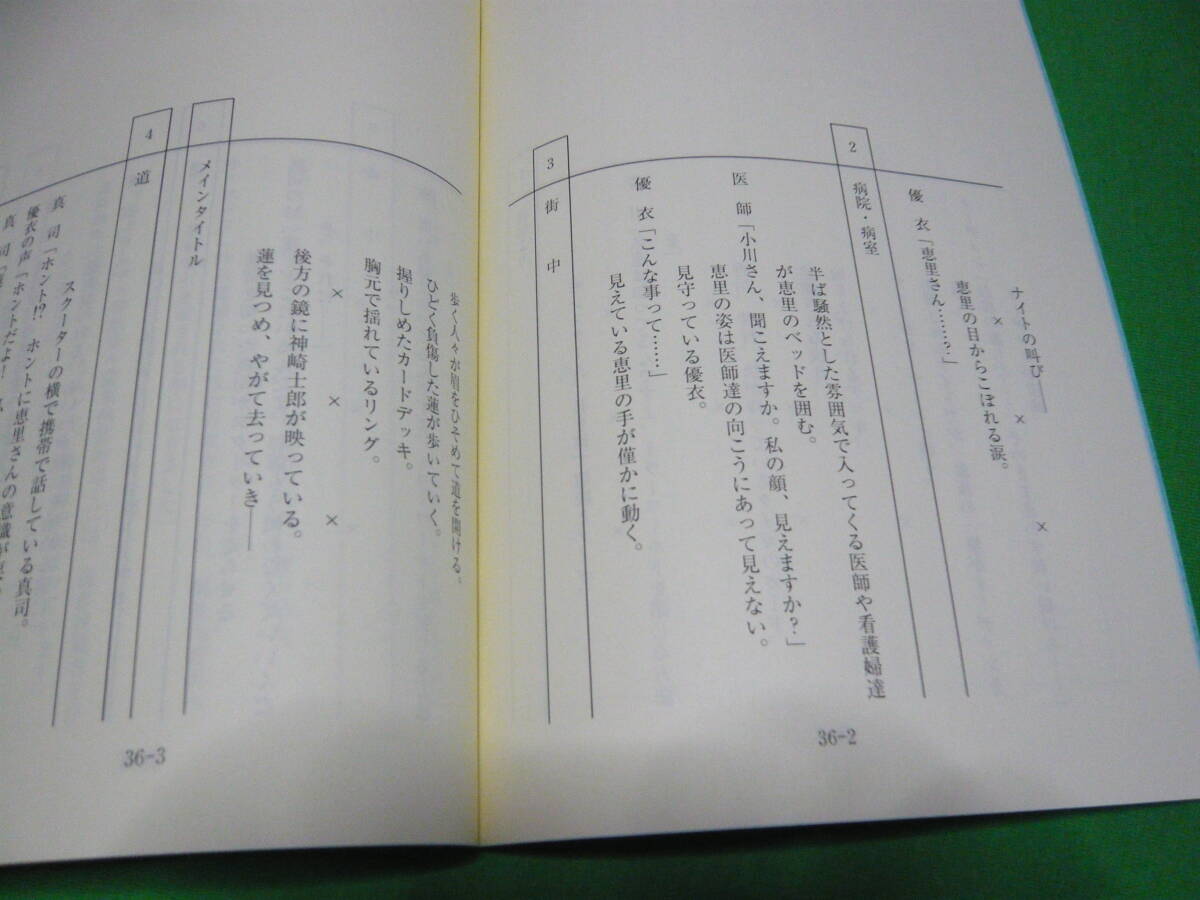 ナイトの叫び――
×　×　×
恵里の目からこぼれる涙。
優　衣「恵里さん……?」
2　病院・病室
半ば騒然とした雰囲気で入ってくる医師や看護婦達
が恵里のベッドを囲む。
医　師「小川さん、聞こえますか。私の顔、見えますか?」
恵里の姿は医師達の向こうにあって見えない。
見守っている優衣。
優　衣「こんな事って……」
見えている恵里の手が僅かに動く。
3　街　中
36-2
歩く人々が眉をひそめて道を開ける。
ひどく負傷した蓮が歩いていく。
握りしめたカードデッキ。
胸元で揺れているリング。
×　×　×
後方の鏡に神崎士郎が映っている。
蓮を見つめ、やがて去っていき――
メインタイトル
4　道
スクーターの横で携帯で話している真司。
真　司「ホント!?
優衣の声「ホントだよ!
真　司「
ホントに恵里さんの意識が
36-3